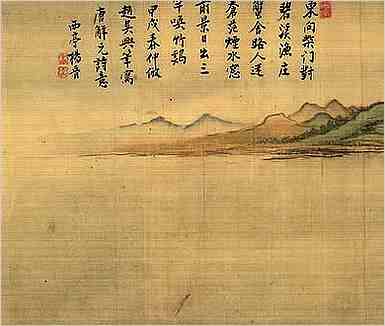 東向柴门對
碧溪漁庄
蟹舍路人迷
蒼茫煙水
前景日出三
竿喚竹鷄
甲戌春仲倣
趙吳興筆寫
唐解元詩意
西亭楊晉